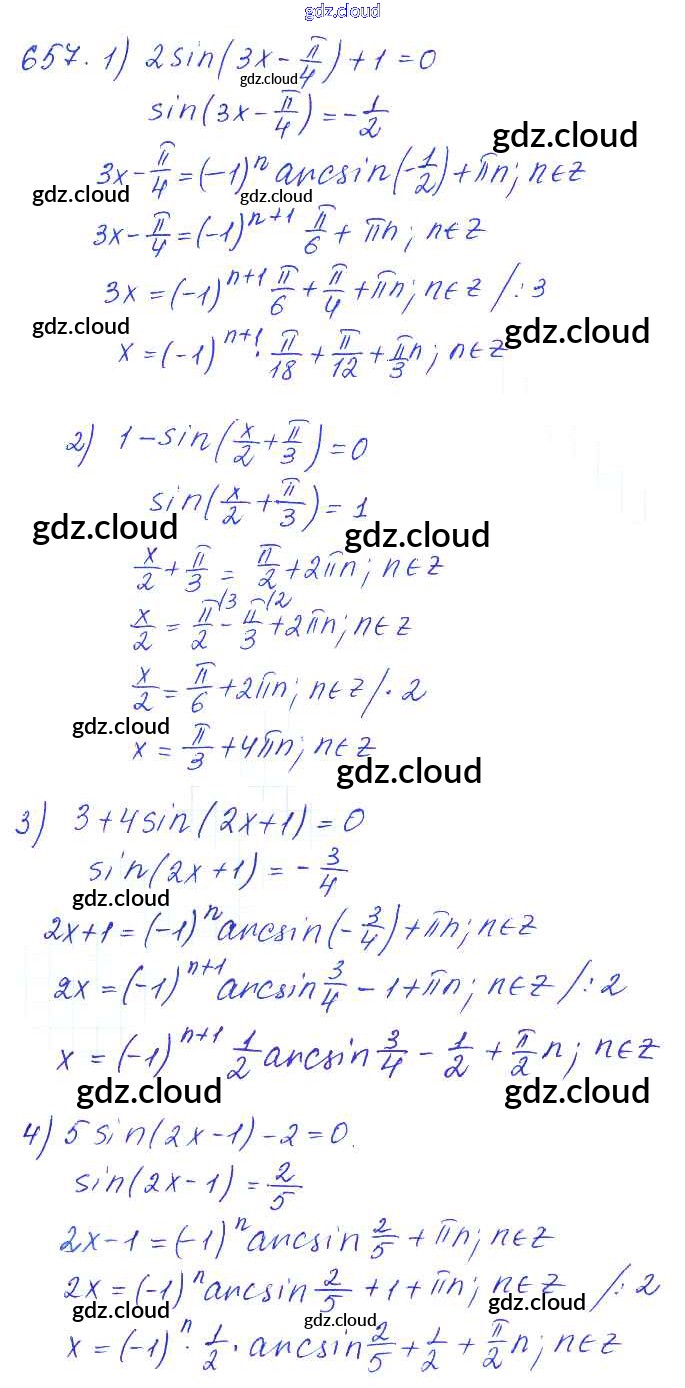 gdz.cloud
657. 1) 2sin(3x - π/4) + 1 = 0
gdz.cloud
sin(3x - π/4) = -1/2
gdz.cloud
3x - π/4 = (-1)^n arcsin(-1/2) + πn; n∈Z
gdz.cloud gdz.cloud
3x - π/4 = (-1)^(n+1) π/6 + πn; n∈Z
3x = (-1)^(n+1) π/6 + π/4 + πn; n∈Z /:3
gdz.cloud gdz.cloud
x = (-1)^(n+1) · π/18 + π/12 + π/3 n; n∈Z
2) 1 - sin(x/2 + π/3) = 0
sin(x/2 + π/3) = 1
gdz.cloud gdz.cloud
x/2 + π/3 = π/2 + 2πn; n∈Z
x/2 = π/2 \3 - π/3 \2 + 2πn; n∈Z
x/2 = π/6 + 2πn; n∈Z /·2
gdz.cloud
x = π/3 + 4πn; n∈Z
gdz.cloud
3) 3 + 4sin(2x+1) = 0
sin(2x+1) = -3/4
gdz.cloud
2x+1 = (-1)^n arcsin(-3/4) + πn; n∈Z
2x = (-1)^(n+1) arcsin 3/4 - 1 + πn; n∈Z /:2
x = (-1)^(n+1) 1/2 arcsin 3/4 - 1/2 + π/2 n; n∈Z
gdz.cloud gdz.cloud
4) 5 sin(2x-1) - 2 = 0.
sin(2x-1) = 2/5
2x-1 = (-1)^n arcsin 2/5 + πn; n∈Z
2x = (-1)^n arcsin 2/5 + 1 + πn; n∈Z /:2
gdz.cloud gdz.cloud gdz.cloud
x = (-1)^n · 1/2 · arcsin 2/5 + 1/2 + π/2 n; n∈Z